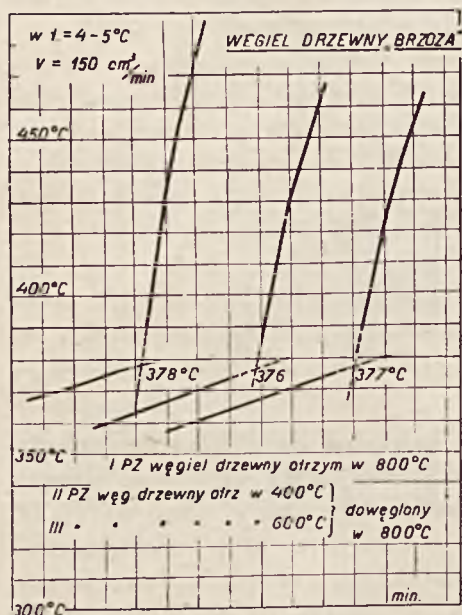 w 1' = 4-5°C
WĘGIEL DRZEWNY BRZOZA
V = 150 cm³/min
450°C
400°C
378°C
376
377°C
350°C
I PZ węgiel drzewny otrzym w 800°C
II PZ węg drzewny otrz w 400°C
III " " " " " 600°C
dowęglony
w 800°C
min.
300°C